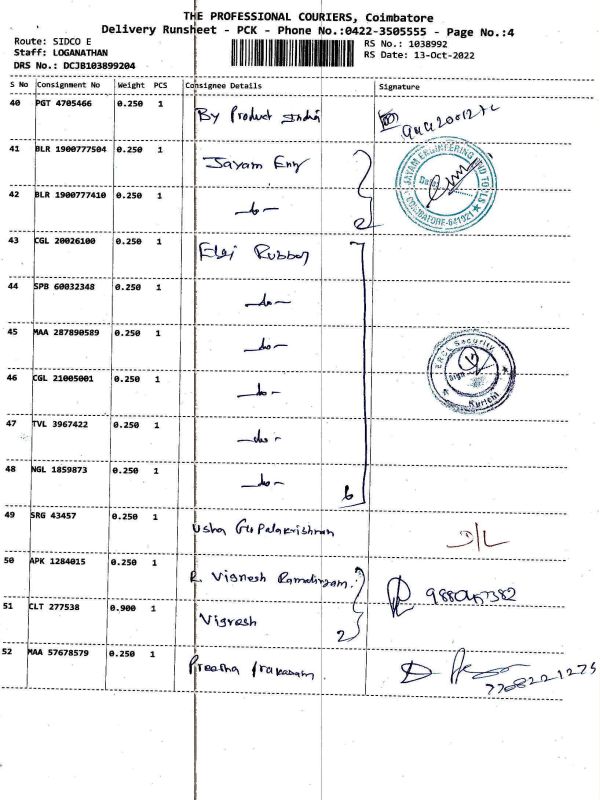 THE PROFESSIONAL COURIERS, Coimbatore
Delivery Runsheet - PCK - Phone No.:0422-3505555 - Page No.:4
Route: SIDCO E
Staff: LOGANATHAN
DRS No.: DCJB103899204
RS No.: 1038992
RS Date: 13-Oct-2022
S No Consignment No Weight PCS Consignee Details Signature
40 PGT 4705466 0.250 1 By Product India
41 BLR 1900777504 0.250 1 Jayam Eng
JAYAM ENGINEERING AND TOOLS
COIMBATORE-641021
42 BLR 1900777410 0.250 1 -do- 2
43 CGL 20026100 0.250 1 Elgi Rubber
44 SPB 60032348 0.250 1 -do-
45 MAA 287890589 0.250 1 -do-
ERCL Security
Sign
Kurichi
46 CGL 21005001 0.250 1 -do-
47 TVL 3967422 0.250 1 -do-
48 NGL 1859873 0.250 1 -do- 6
49 SRG 43457 0.250 1 Usha Gopalakrishnan
50 APK 1284015 0.250 1 R. Vignesh Ramalingam.
51 CLT 277538 0.900 1 Vignesh 2
52 MAA 57678579 0.250 1 Preetha Prakasam
7708221275